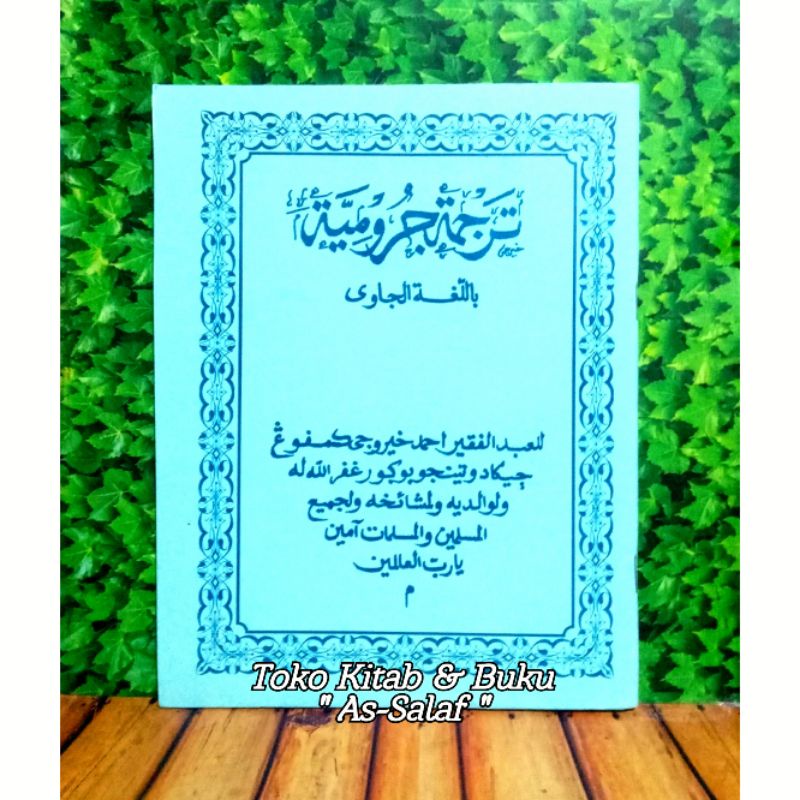 تَرْجَمَة جُرُومِيَّة
باللّغة الجاوى
للعبد الفقير احمد خيروجى كمفوڠ
چيكادو تينجو بوكور غفر الله له
ولوالديه ولمشائخه ولجميع
المسلمين والمسلمات آمين
يارب العالمين
م
Toko Kitab & Buku
" As-Salaf "